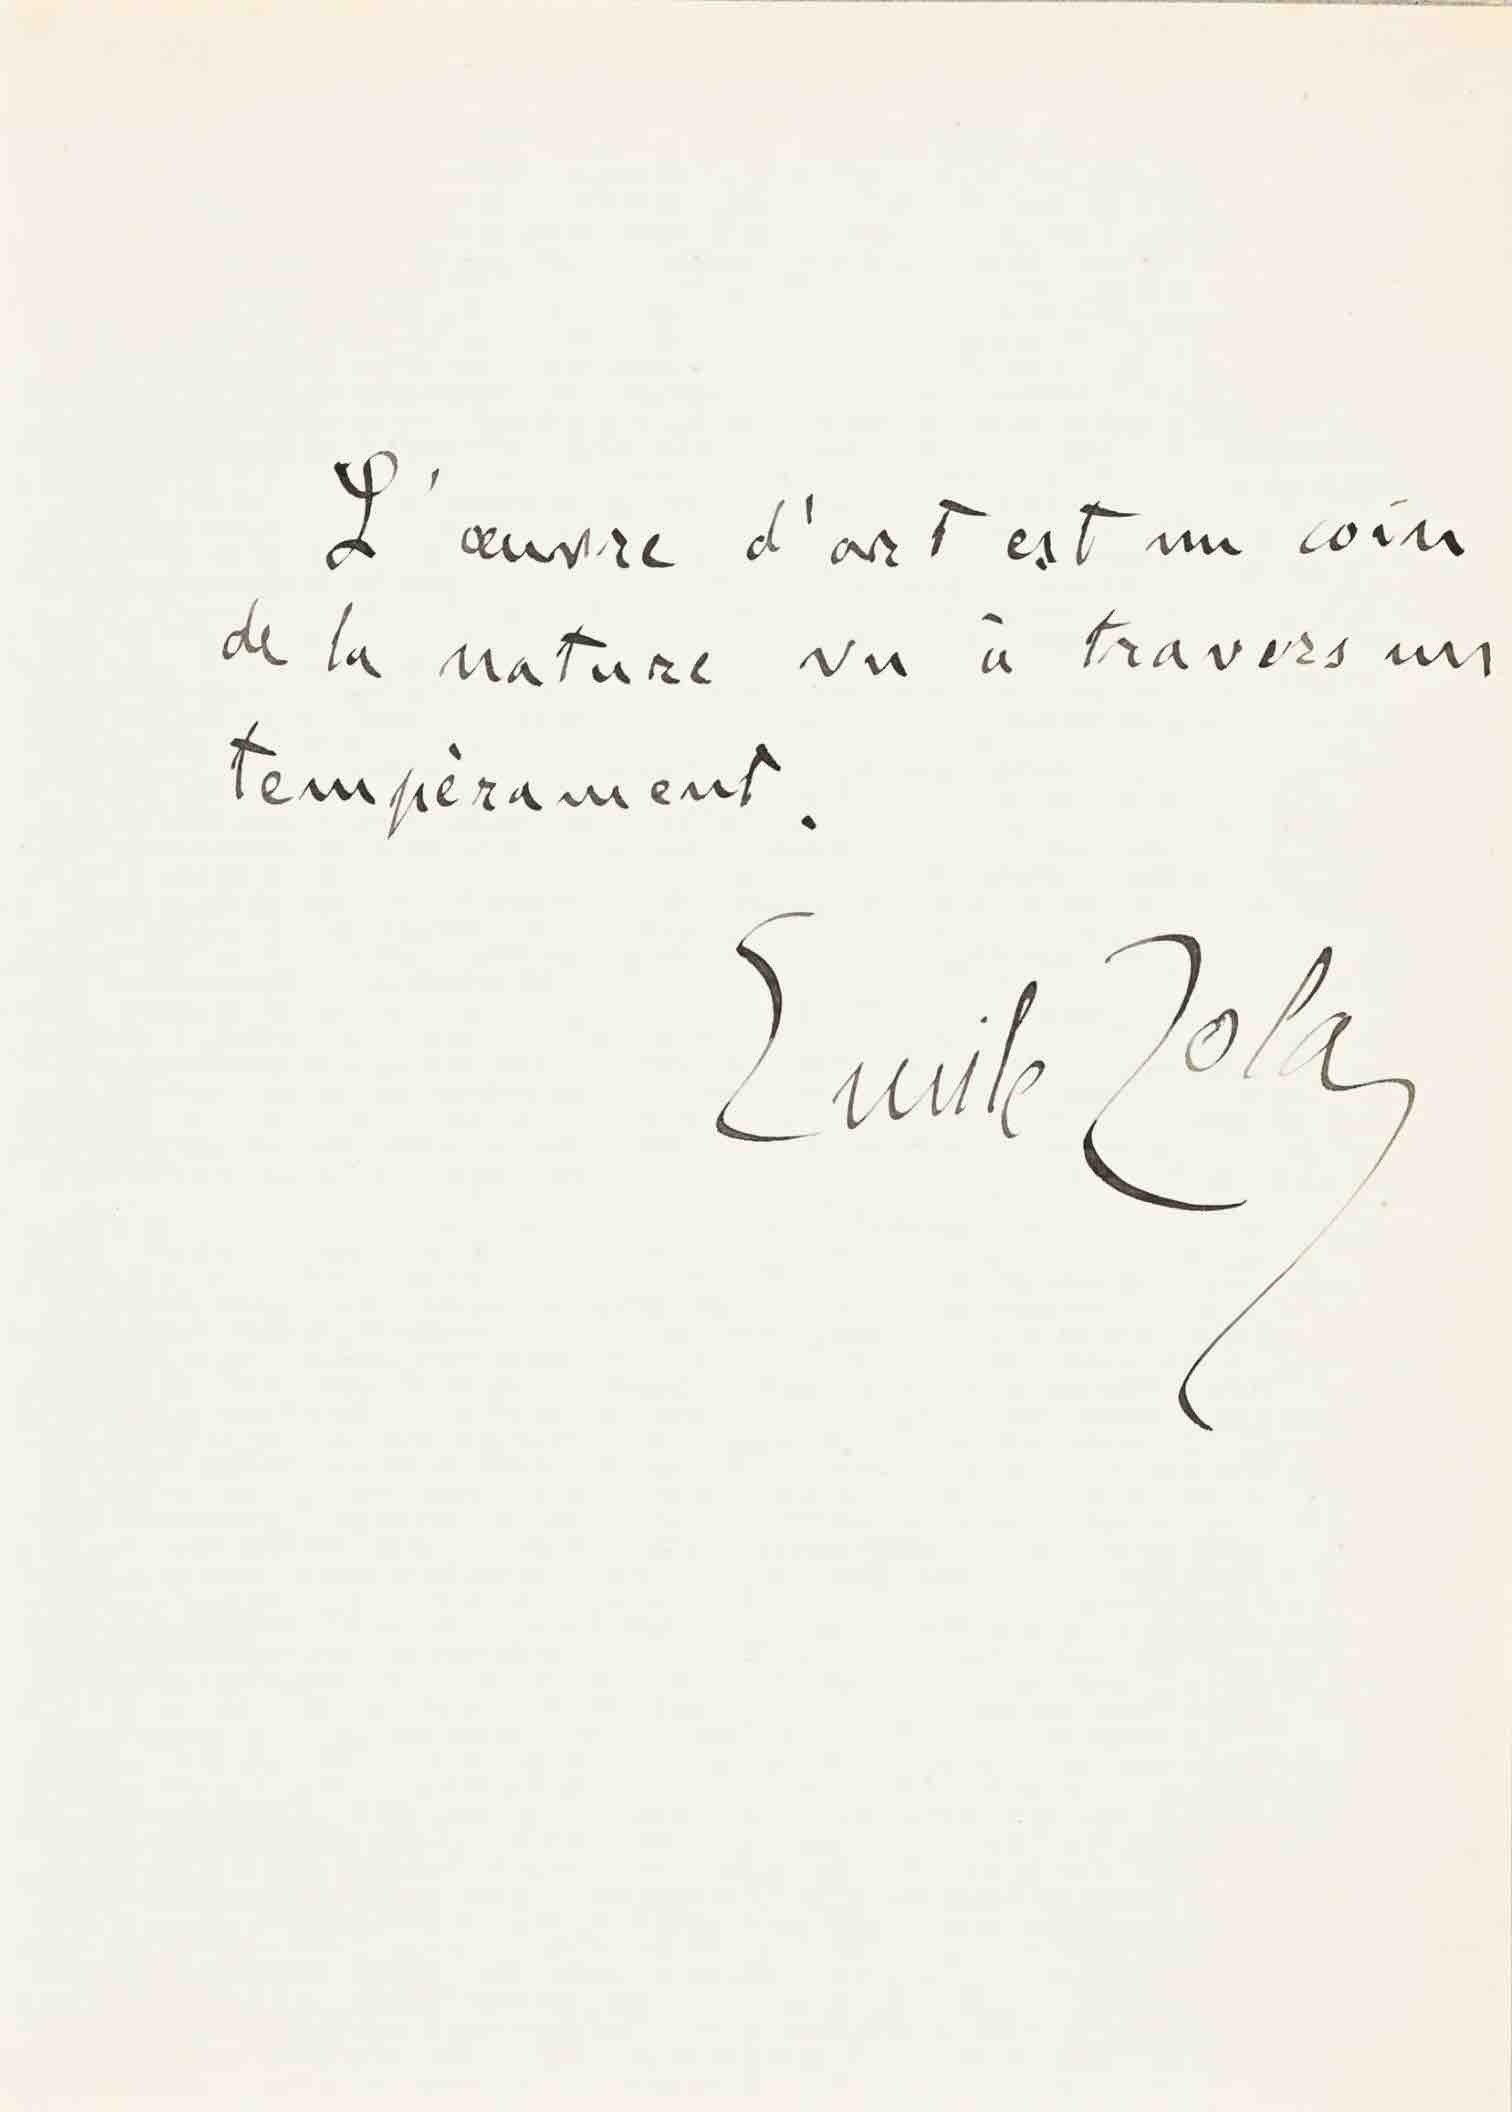 L'œuvre d'art est un coin
de la nature vu à travers un
tempérament.
Emile Zola